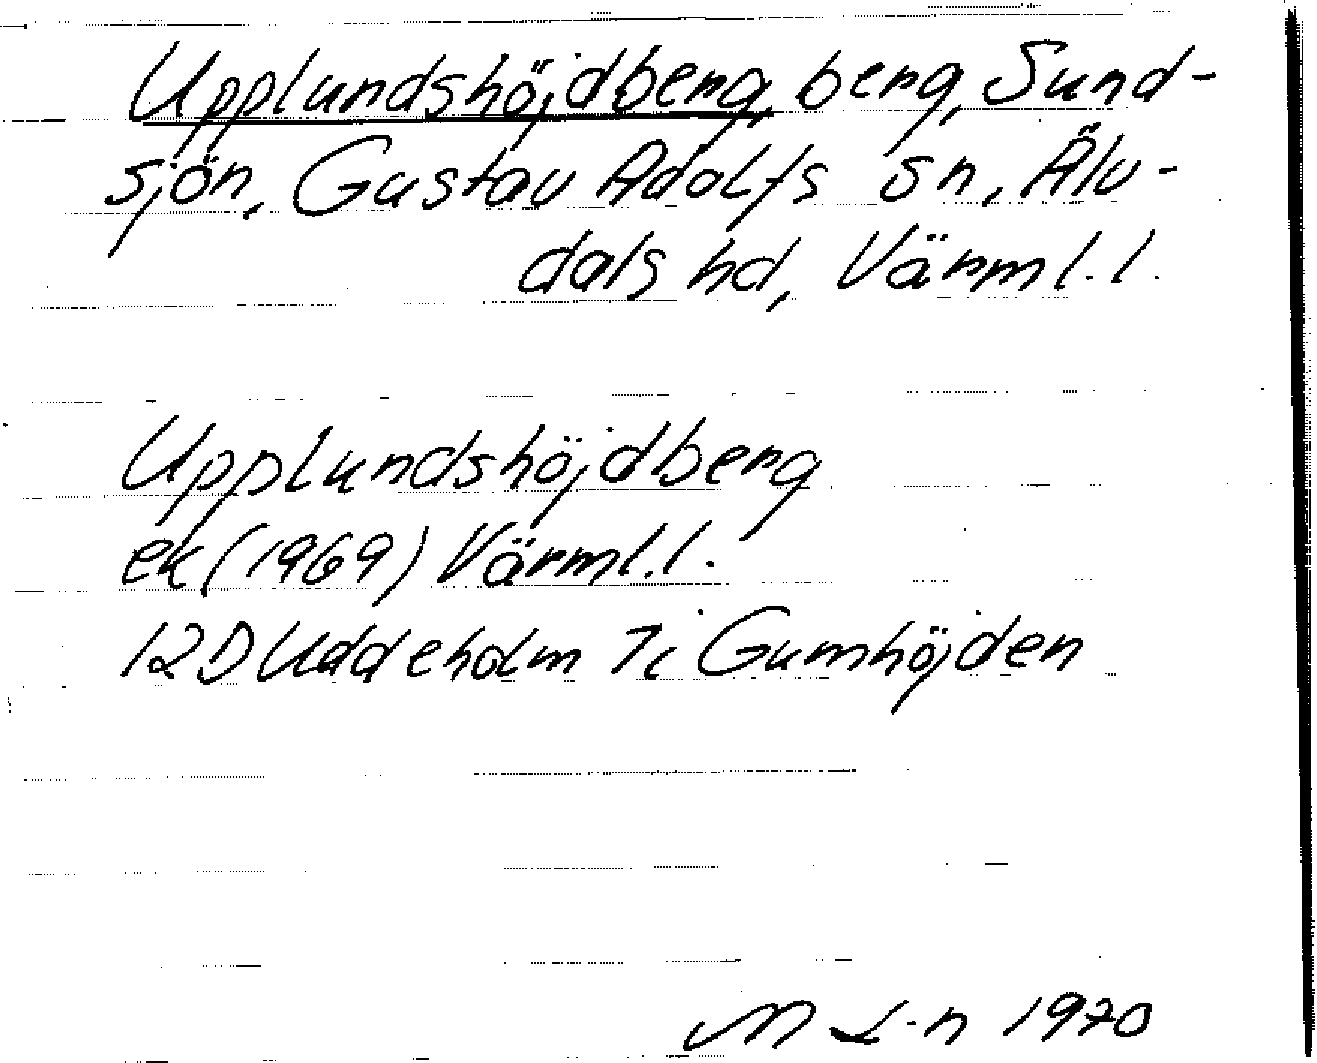 Upplundshöjdberg, berg, Sund-
sjön, Gustav Adolfs sn, Älv-
dals hd, Värml. l.
Upplundshöjdberg
ek (1969) Värml. l.
12D Uddeholm 7i Gumhöjden
M L-n 1970